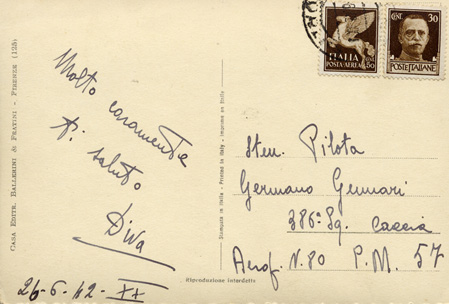 CASA EDITR. BALLERINI & FRATINI - FIRENZE (125)
Molto
caramente
ti saluto
Diva
26-6-42-XX
Stampata in Italia - Printed in Italy - Imprimé en Italie
Riproduzione interdetta
ITALIA
POSTA AEREA
50
CENT. 30
POSTE ITALIANE
Sten. Pilota
Germano Gennari
386ª Sq. Caccia
Aerop. N. 80 P.M. 57